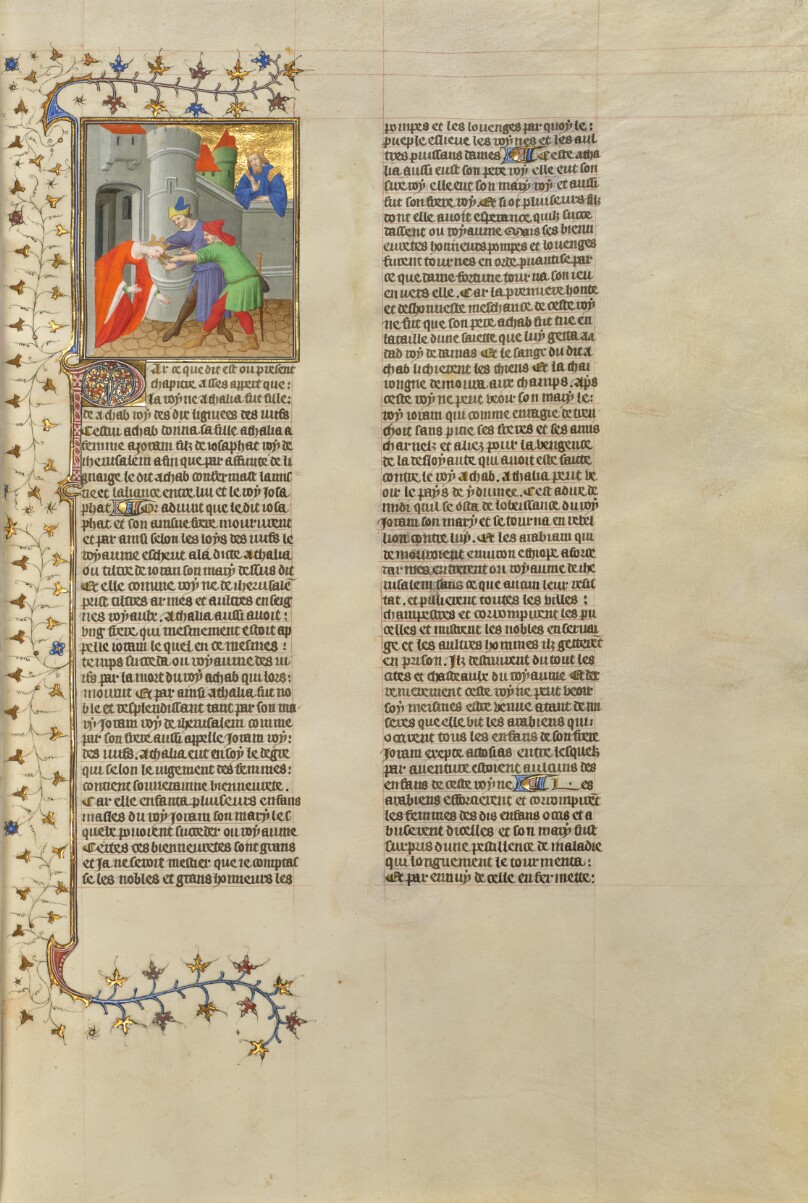 Par ce que dit est ou present
chapitre asses appert que:
la royne athalia fut fille:
de achab roy des dix lignees des iuifs
Cestui achab donna sa fille athalia a
femme a ioram filz de iosaphat roy de
iherusalem afin que par affinite de li
gnaige le dit achab confermast lamis
tie et laliance entre lui et le roy iosa
phat Or aduint que le dit iosa
phat et son ainsne frere moururent
et par ainsi selon les loys des iuifs le
royaume escheut a la dicte athalia
ou tiltre de ioram son mary dessus dit
Et elle comme royne de iherusale
prist tiltres armes et aultres enseig
nes royaulx. Athalia aussi auoit:
vng frere qui mesmement estoit ap
pelle ioram le quel en ce mesmes:
temps succeda ou royaume des iu
ifs par la mort du roy achab qui lors:
mourut Et par ainsi athalia fut no
ble et resplendissant tant par son ma
ry Joram roy de iherusalem comme
par son frere aussi appelle Joram roy:
des iuifs. Athalia eut en soy le degre
qui selon le iugement des femmes:
contient souueraine bieneurete.
Car elle enfanta pluseurs enfans
masles du roy ioram son mary les
quelz pouoient succeder ou royaume
Certes ces bieneuretes sont grans
et Ja ne seroit mestier que ie comptas
se les nobles et grans honneurs les
pompes et les louenges par quoy le:
pueple eslieue les roynes et les aul
tres puissans dames Ceste atha
lia aussi eust son pere roy elle eut son
sire roy elle eut son mary roy et aussi
fut son frere roy. Et si ot pluiseurs filz
dont elle auoit esperance quilz succe
dassent ou royaume Mais ses bieneu
euretes honneurs pompes et louenges
furent tournes en orde puantise par
ce que dame fortune tourna son ieu
enuers elle. Car la premiere honte
et deshonneste meschance de ceste roy
ne fut que son pere achab fut tue en
bataille dune saiette que luy getta aa
dad roy de damas Et le sangc du dit a
chab lichierent les chiens Et la cha
rongne demoura aux champs. Aps
ceste royne peut veoir son mary le:
roy ioram qui comme enragie detren
choit sans pitie ses freres et ses amis
charnelz et aliez pour la vengence
de la desloyaute qui auoit este faicte
contre le roy Achab. Athalia peut ve
oir le pays de ydumee. Cest a dire de
midi qui se osta de lobeissance du roy
Joram son mary et se tourna en rebel
lion contre luy. Et les arabians qui
demouroient enuiron ethiope a force
darmes entrerent ou royaume de ihe
rusalem sans ce que aucun leur resis
tat. et pillierent toutes les villes:
champestres et corrompirent les pu
celles et mistrent les nobles en seruai
ge et les aultres hommes ilz getterent
en prison. Ilz destruirent du tout les
cites et chasteaulx du royaume Et der
renierement ceste royne peut veoir
soy meismes estre venue a tant de mi
seres que elle vit les arabiens qui:
occirent tous les enfans de son frere
Joram exepte acosias entre lesquelz
par auenture estoient aulcuns des
enfans de ceste royne Les
arabiens efforcierent et corrompirent
les femmes des dis enfans occis et a
buserent dicelles et son mary fust
surpris dune pestilence de maladie
qui longuement le tourmenta:
Et par ennuy de celle enfermete: